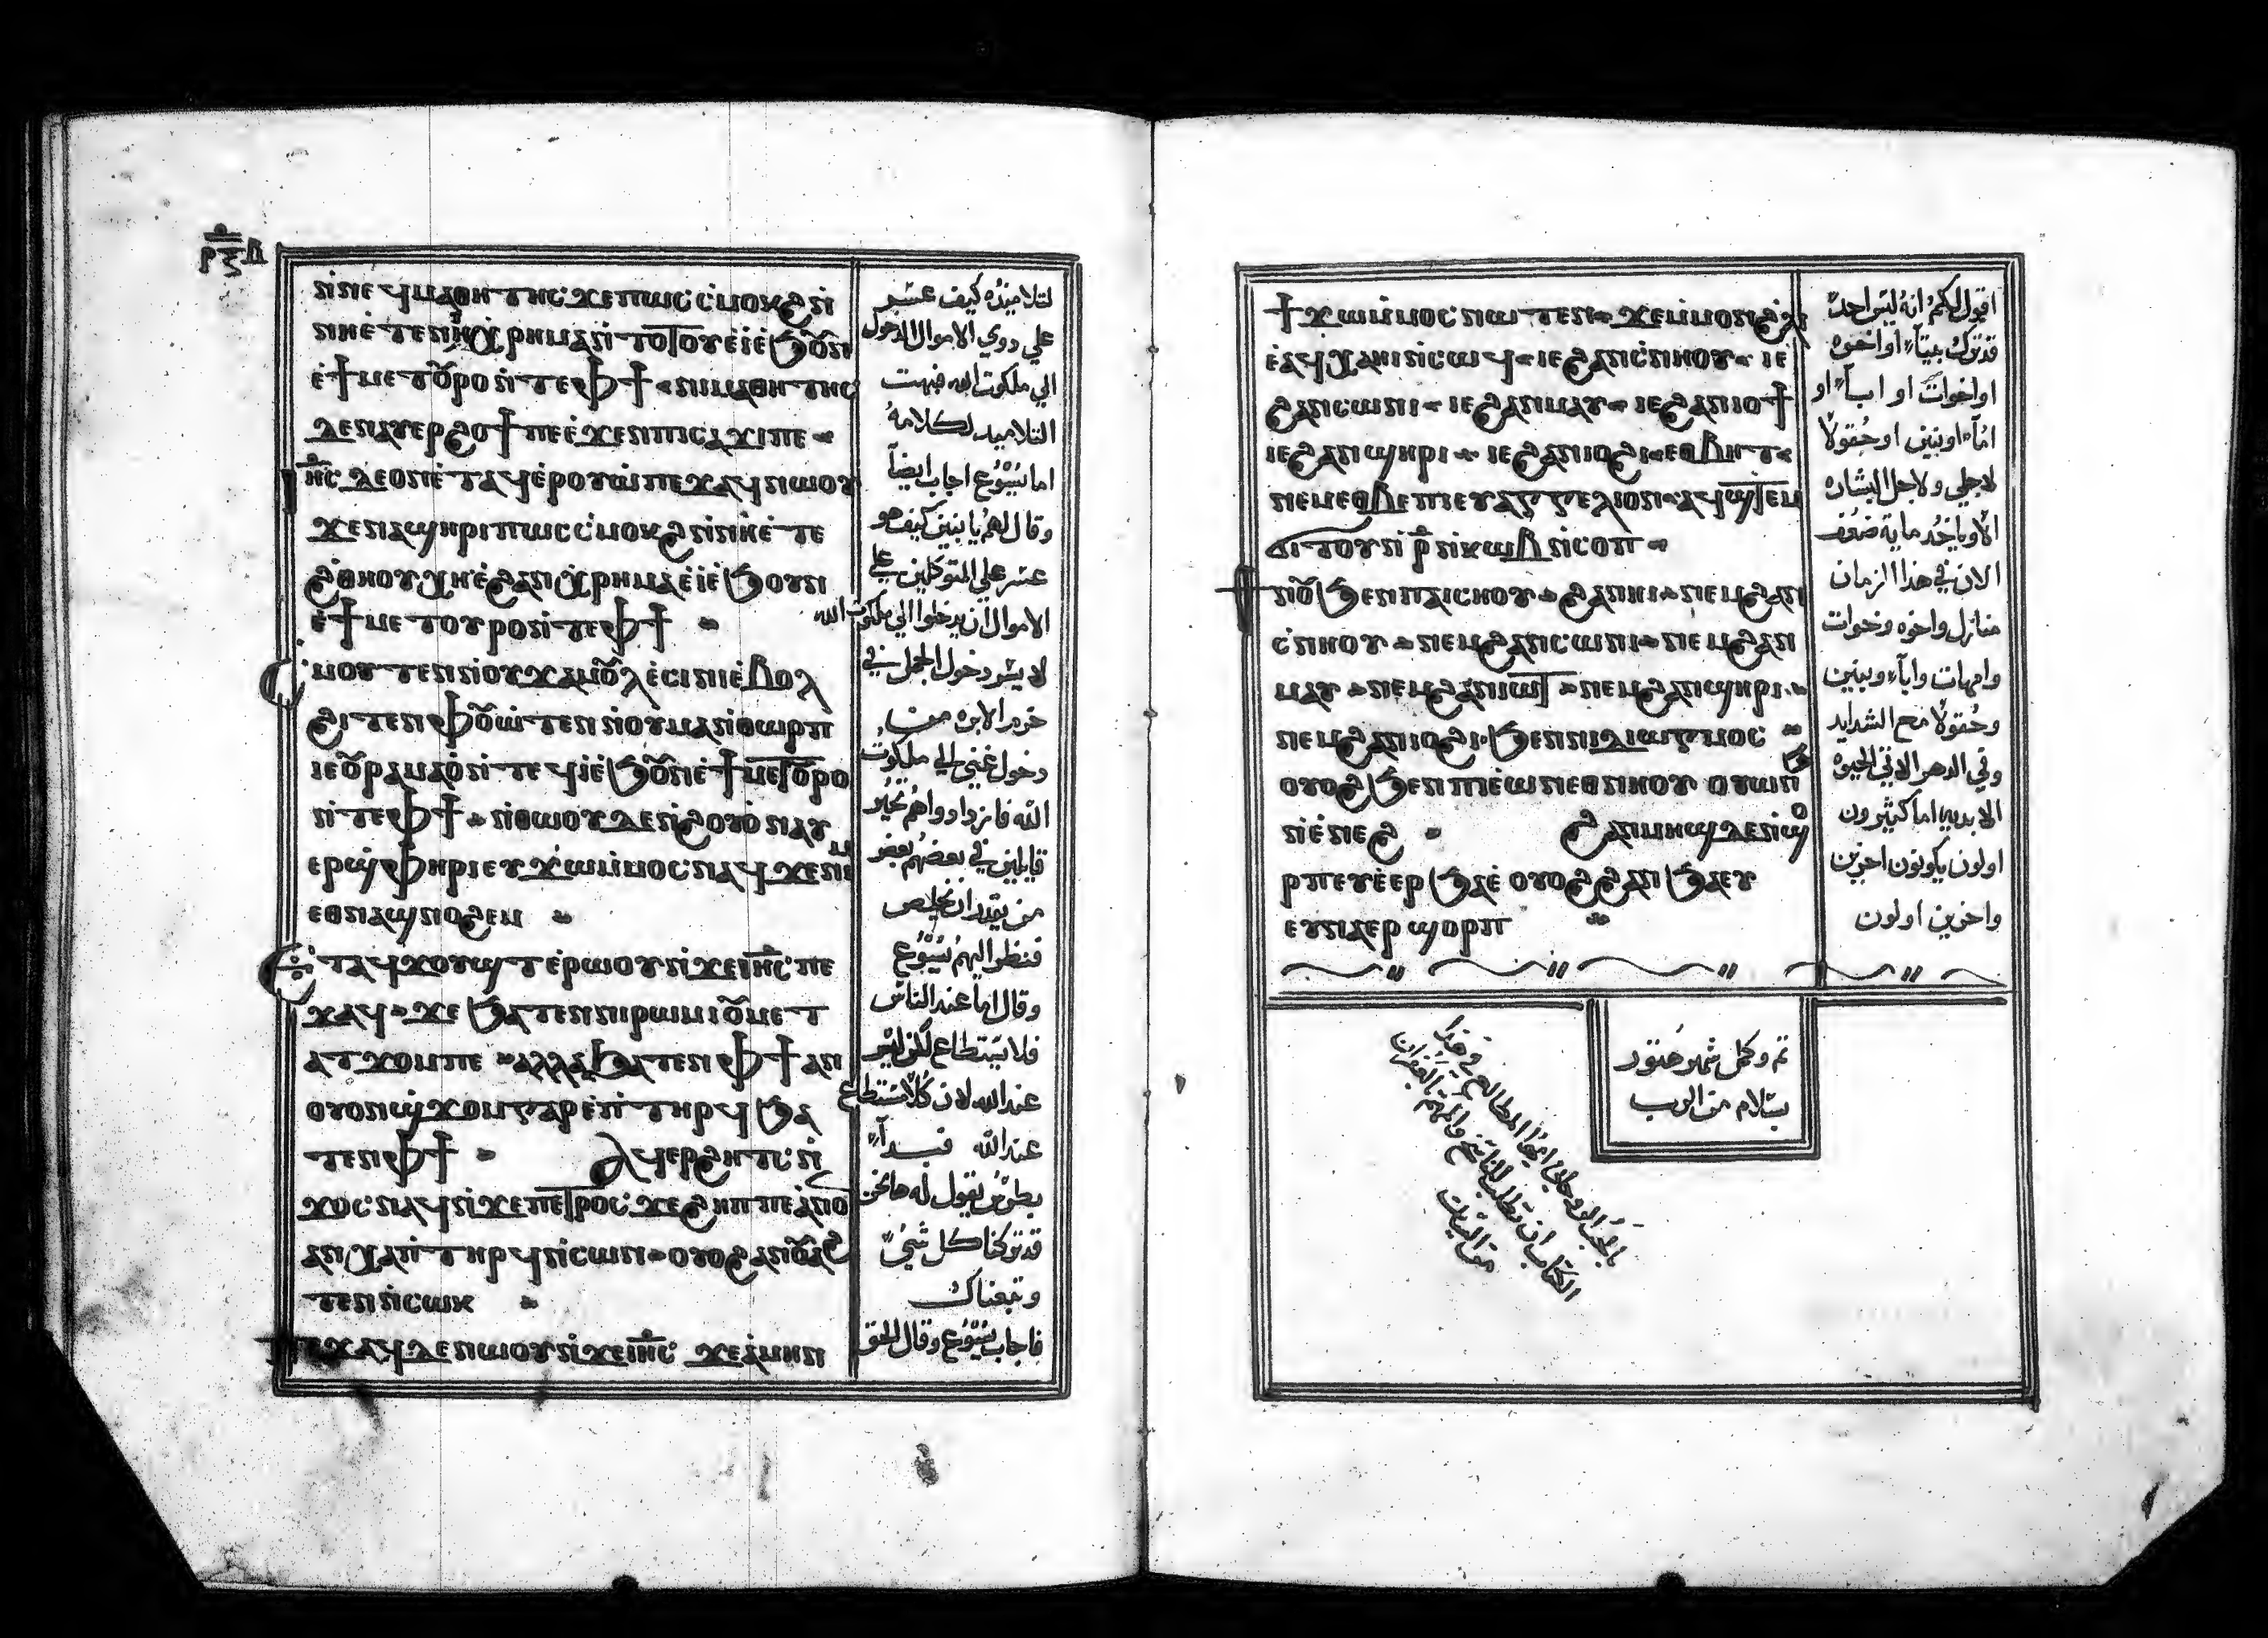 ⲣⲝⲏ
ⲛ̀ⲛⲉϥⲙⲁⲑⲏⲧⲏⲥ ϫⲉ ⲡⲱⲥ ⲥ̀ⲙⲟⲕϩ ⲛ̀
ⲛⲏⲉ̀ⲧⲉ ⲛⲓⲭ̀ⲣⲏⲙⲁ ⲛ̀ⲧⲟⲧⲟⲩ ⲉ̀ⲓ̀ ⲉ̀ϧⲟⲩⲛ
ⲉ̀ϯⲙⲉⲧⲟⲩⲣⲟ ⲛ̀ⲧⲉ ⲫϯ ⲛⲓⲙⲁⲑⲏⲧⲏⲥ
ⲇⲉ ⲛⲁⲩⲉⲣϩⲟϯ ⲡⲉ ⲉ̀ϫⲉⲛ ⲡⲓⲥⲁϫⲓ ⲡⲉ
ⲓⲏ̅ⲥ̅ ⲇⲉ ⲟⲛ ⲉ̀ⲧⲁϥⲉⲣⲟⲩⲱ̀ ⲡⲉϫⲁϥ ⲛⲱⲟⲩ
ϫⲉ ⲛⲁϣⲏⲣⲓ ⲡⲱⲥ ⲥ̀ⲙⲟⲕϩ ⲛ̀ⲛⲏⲉ̀ⲧⲉ
ϩⲑⲏⲟⲩ ⲭⲏ ⲉ̀ϩⲁⲛⲭ̀ⲣⲏⲙⲁ ⲉ̀ⲓ̀ ⲉ̀ϧⲟⲩⲛ
ⲉ̀ϯⲙⲉⲧⲟⲩⲣⲟ ⲛ̀ⲧⲉ ⲫϯ
ⲙⲟⲧⲉⲛ ⲛ̀ⲟⲩϫⲁⲙⲟⲩⲗ ⲉ̀ⲥⲓⲛⲓ ⲉ̀ⲃⲟⲗ
ϩⲓⲧⲉⲛ ⲫⲟⲩⲱ̀ⲧⲉⲛ ⲛ̀ⲟⲩⲙⲁⲛ̀ⲑⲱⲣⲡ
ⲓⲉ ⲟⲩⲣⲁⲙⲁⲟ̀ ⲛ̀ⲧⲉϥⲓ̀ ⲉ̀ϧⲟⲩⲛ ⲉ̀ϯⲙⲉⲧⲟⲩⲣⲟ
ⲛ̀ⲧⲉ ⲫϯ ⲛ̀ⲑⲱⲟⲩ ⲇⲉ ⲛ̀ϩⲟⲩⲟ̀ ⲛⲁⲩ
ⲉⲣϣ̀ⲫⲏⲣⲓ ⲉⲩϫⲱ ⲙ̀ⲙⲟⲥ ⲛⲁϥ ϫⲉ ⲛⲓⲙ
ⲉⲑⲛⲁϣⲛⲟϩⲉⲙ
ⲉ̀ⲧⲁϥϫⲟⲩϣⲧ ⲉ̀ⲣⲱⲟⲩ ⲛ̀ϫⲉ ⲓⲏ̅ⲥ̅ ⲡⲉ
ϫⲁϥ ϫⲉ ϧⲁⲧⲉⲛ ⲛⲓⲣⲱⲙⲓ ⲟⲩⲙⲉⲧ
ⲁⲧϫⲟⲙ ⲡⲉ ⲁⲗⲗⲁ ϧⲁⲧⲉⲛ ⲫϯ ⲁⲛ
ⲟⲩⲟⲛ ϣ̀ϫⲟⲙ ⲅⲁⲣ ⲉ̀ⲛⲓ ⲧⲏⲣϥ ϧⲁ
ⲧⲉⲛ ⲫϯ ⲁϥⲉⲣϩⲏⲧⲥ ⲛ̀
ϫⲟⲥ ⲛⲁϥ ⲛ̀ϫⲉ ⲡⲉⲧⲣⲟⲥ ϫⲉ ϩⲏⲡⲡⲉ ⲁⲛⲟⲛ
ⲁⲛⲭⲁ ⲛⲓ ⲧⲏⲣϥ ⲛ̀ⲥⲱⲛ ⲟⲩⲟϩ ⲁⲛⲟⲩⲁϩ
ⲧⲉⲛ ⲛ̀ⲥⲱⲕ
ⲡⲉϫⲁϥ ⲇⲉ ⲛⲱⲟⲩ ⲛ̀ϫⲉ ⲓⲏ̅ⲥ̅ ϫⲉ ⲁ̀ⲙⲏⲛ
لتلاميذه كيف عسر
علي دوي الاموال الدخول
الي ملكوت الله فبهت
التلاميد لكلامه
اما يسوع اجاب ايضاً
وقال لهم يا بنين كيف هو
عسر علي المتوكلين علي
الاموال أن يدخلوا الي ملكوت الله
لا يسر دخول الجمل في
خرم الابره من
دخول غني الي ملكوت
الله فازدادوا هم تحير
قايلين في بعضهم بعض
من يقدر ان يخلص
فنظر اليهم يسوع
وقال اما عند الناس
فلا يستطاع لكن ليس
عند الله لان كلاً مستطاع
عند الله فبدا
بطرس يقول له ها نحن
قد تركنا كل شي
وتبعناك
فاجاب يسوع وقال الحق
ϯϫⲱ ⲙ̀ⲙⲟⲥ ⲛⲱⲧⲉⲛ ϫⲉ ⲙ̀ⲙⲟⲛ ϩⲗⲓ
ⲉ̀ⲁϥⲭⲁ ⲏⲓ ⲛ̀ⲥⲱϥ ⲓⲉ ϩⲁⲛⲥ̀ⲛⲏⲟⲩ ⲓⲉ
ϩⲁⲛⲥⲱⲛⲓ ⲓⲉ ϩⲁⲛⲙⲁⲩ ⲓⲉ ϩⲁⲛⲓⲟϯ
ⲓⲉ ϩⲁⲛϣⲏⲣⲓ ⲓⲉ ϩⲁⲛⲓⲟϩⲓ ⲉⲑⲃⲏⲧ
ⲛⲉⲙ ⲉⲑⲃⲉ ⲡⲓⲉⲩⲁⲅⲅⲉⲗⲓⲟⲛ ⲁϥϣⲧⲉⲙ
ϭⲓⲧⲟⲩ ⲛ̀ⲣ̅ ⲛ̀ⲕⲱⲃ ⲛ̀ⲥⲟⲡ
ϯⲛⲟⲩ ϧⲉⲛ ⲡⲁⲓⲥⲏⲟⲩ ϩⲁⲛⲏⲓ ⲛⲉⲙ ϩⲁⲛ
ⲥ̀ⲛⲏⲟⲩ ⲛⲉⲙ ϩⲁⲛⲥⲱⲛⲓ ⲛⲉⲙ ϩⲁⲛ
ⲙⲁⲩ ⲛⲉⲙ ϩⲁⲛⲓⲱⲧ ⲛⲉⲙ ϩⲁⲛϣⲏⲣⲓ
ⲛⲉⲙ ϩⲁⲛⲓⲟϩⲓ ϧⲉⲛ ⲛⲓⲇⲓⲱⲅⲙⲟⲥ
ⲟⲩⲟϩ ϧⲉⲛ ⲡⲓⲉ̀ⲱⲛ ⲉⲑⲛⲏⲟⲩ ⲟⲩⲱⲛϧ
ⲛ̀ⲉ̀ⲛⲉϩ ϩⲁⲛⲙⲏϣ ⲇⲉ ⲛ̀ϣⲟ
ⲣⲡ ⲉⲩⲉ̀ⲉⲣϧⲁⲉ̀ ⲟⲩⲟϩ ϩⲁⲛϧⲁⲉⲩ
ⲉⲩⲛⲁⲉⲣϣⲟⲣⲡ
اقول لكم انه ليس احد
قد ترك بيتاً او اخوه
او اخوات او اباً او
اماً او بنين او حقولاً
لاجلي ولاجل البشاره
الا وياخد ماية ضعف
الان في هذا الزمان
منازل واخوه وخوات
وامهات واباء وبنين
وحقولاً مع الشدايد
وفي الدهر الاتي الحيوه
الابديه اما كثيرون
اولون يكونون اخرين
واخرين اولون
تم وكمل شهر هتور
بسلام من الرب